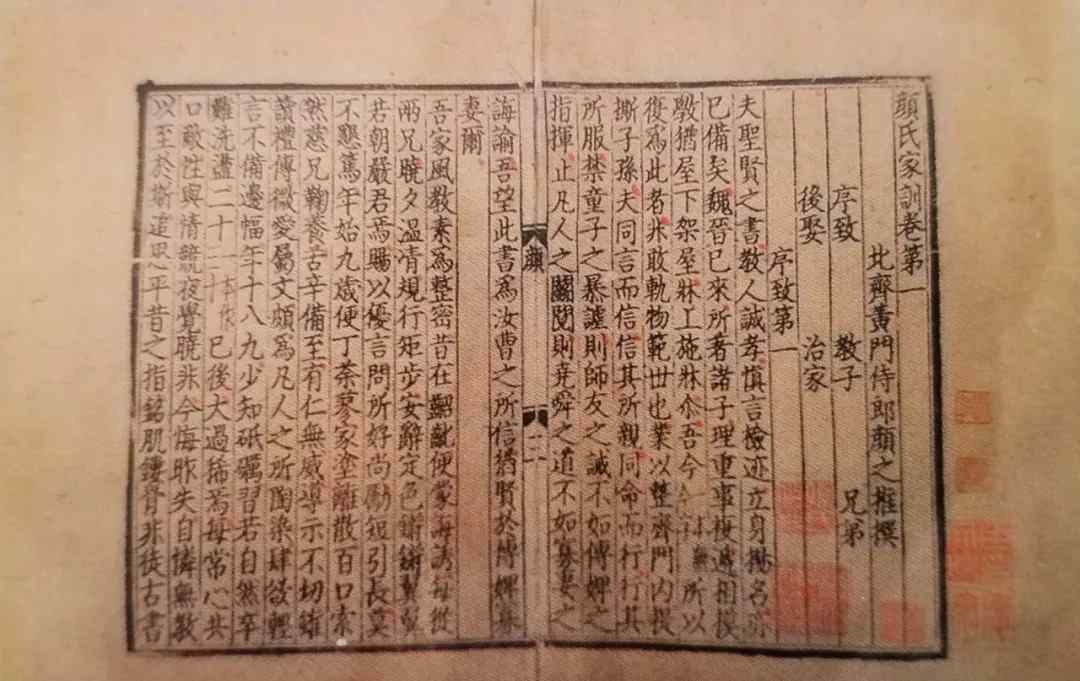 顔氏家訓卷第一
北齊黃門侍郎顔之推撰
序致 教子 兄弟
後娶 治家
序致第一
夫聖賢之書教人誠孝慎言檢迹立身揚名亦
已備矣魏晉已來所著諸子理重事複遞相模
斆猶屋下架屋牀上施牀尒吾今 無 所以
復爲此者非敢軌物範世也業以整齊門内提
撕子孫夫同言而信信其所親同命而行行其
所服禁童子之暴謔則師友之誡不如傅婢之
指揮止凡人之鬭䦧則堯舜之道不如寡妻之
顔 二
誨諭吾望此書爲汝曹之所信猶賢於傅婢寡
妻爾
吾家風教素爲整密昔在齠齓便蒙誨誘每從
兩兄曉夕溫凊規行矩步安辭定色鏘鏘翼翼
若朝嚴君焉賜以優言問所好尚勵短引長莫
不懇篤年始九歲便丁荼蓼家塗離散百口索
然慈兄鞠養苦辛備至有仁無威導示不切雖
讀禮傳微愛屬文頗爲凡人之所陶染肆欲輕
言不備邊幅年十八九少知砥礪習若自然卒
難洗盪二十一本作三十已後大過稀焉每常心共
口敵性與情競夜覺曉非今悔昨失自憐無教
以至於斯追思平昔之指銘肌鏤骨非徒古書